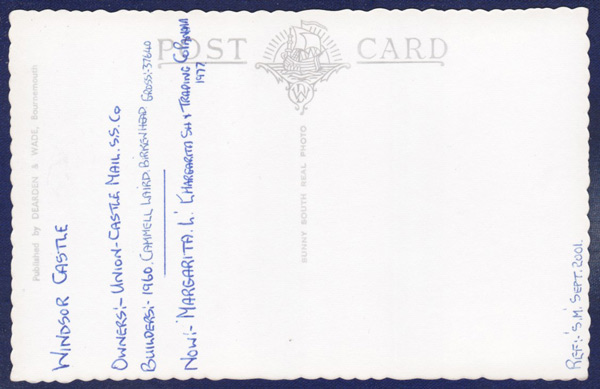 POST CARD
W
Published by DEARDEN & WADE, Bournemouth
SUNNY SOUTH REAL PHOTO
WINDSOR CASTLE
OWNERS:- UNION-CASTLE MAIL. S.S. Co
BUILDERS:- 1960. CAMMELL LAIRD. BIRKENHEAD. GROSS:- 37640
NOW:- 'MARGARITA. L.' (MARGARITA SH & TRADING Co PANAM
1977
REF:- 'S.M.' SEPT. 2001.